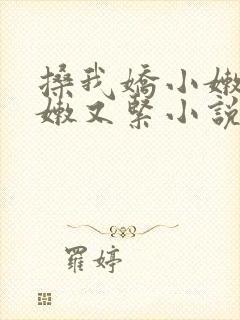 搡我嬌小嫩
嫩又緊小說
羅婷